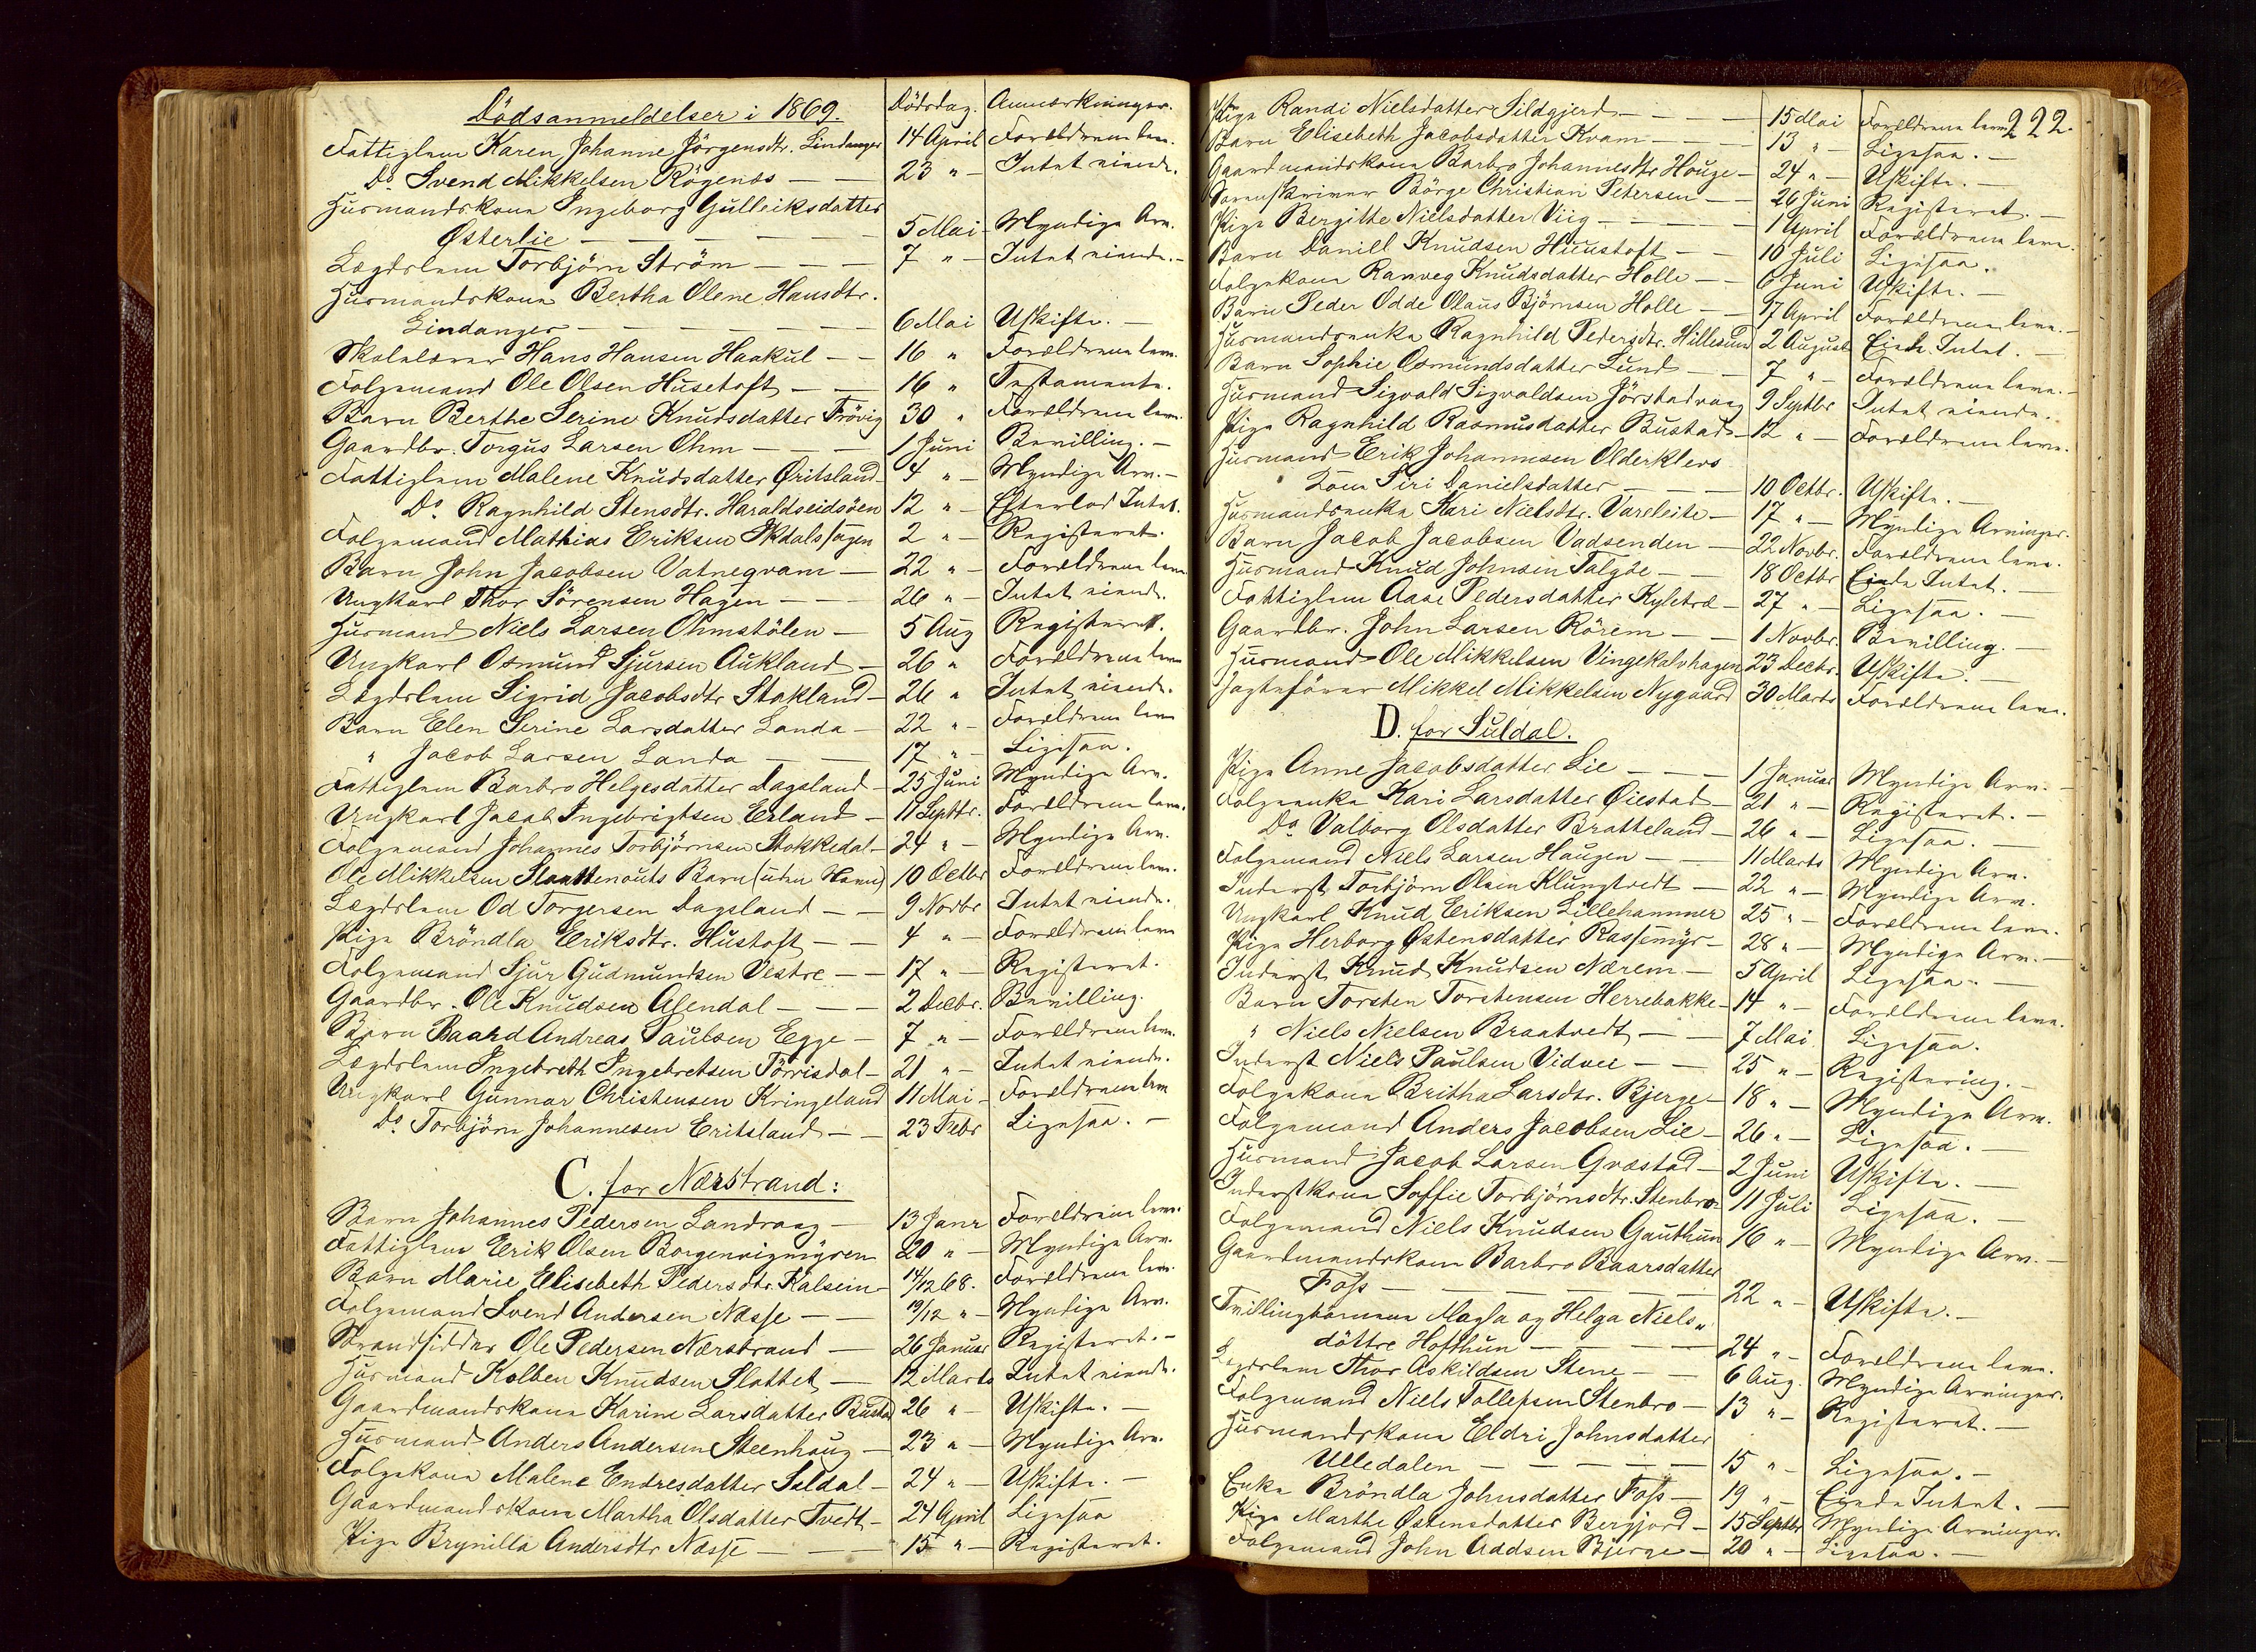 Dödsanmeldelser i 1869. Dödsdag. Anmærkninger.
Fattiglem Karen Johanne Jörgensdtr. Lindanger 14 April Forældrene leve.
Do Svend Mikkelsen Rögenæs — 23 " — Intet eiende.
Husmandskone Ingeborg Gulleiksdatter
Østerlie — 5 Mai — Myndige Arv.
Lægdslem Torbjörn Ström — 7 " — Intet eiende. —
Husmandskone Bertha Olene Hansdtr.
Lindanger — 6 Mai Uskifte. —
Skolelærer Hans Hansen Haakul — 16 " Forældrene leve.
Folgemand Ole Olsen Husetoft — 16 " Testamente.
Barn Berthe Serine Knudsdatter Frövig 30 " Forældrene leve.
Gaardbr. Torgus Larsen Ohm — 1 Juni Bevilling. —
Fattiglem Malene Knudsdatter Øritsland 4 " — Myndige Arv. —
Do Ragnhild Stensdtr. Haraldseidsöen 12 " — Efterlod Intet.
Folgemand Mathias Eriksen 2 " — Registeret.
Barn John Jacobsen Vatneqvam — 22 " — Forældrene leve
Ungkarl Thor Sörensen Hagen — 26 " — Intet eiende.
Husmand Niels Larsen Ohmstölen — 5 Aug Registeret.
Ungkarl Osmund Sjursen Aukland — 26 " Forældrene leve
Lægdslem Sigrid Jacobsdtr Stakland — 26 " Intet eiende.
Barn Elen Serine Larsdatter Landa — 22 " — Forældrene leve
" Jacob Larsen Landa — 17 " — Ligesaa.
Fattiglem Barbro Helgesdatter Dagsland — 25 Juni Myndige Arv.
Ungkarl Jacob Ingebrigtsen Erland — 11 Septbr. Forældrene leve.
Folgemand Johannes Torbjörnsen Stokkedal — 24 " — Myndige Arv.
Ole Mikkelsen Barn (uden Navn) 10 Octbr Forældrene leve.
Lægdslem Od Torgersen Dagsland — 9 Novbr Intet eiende.
Pige Bröndla Eriksdtr. Hustoft — 4 " — Forældrene leve
Folgemand Sjur Gudmundsen Vestre — 17 " — Registeret.
Gaardbr. Ole Knudsen Alendal — 2 Decbr. Bevilling.
Barn Baard Andreas Paulsen Egge — 7 " — Forældrene leve.
Lægdslem Ingebreth Ingebretsen Törrisdal — 21 " — Intet eiende.
Ungkarl Gunnar Christensen Kringeland 11 Mai — Forældrene leve
Do Torbjörn Johannesen Eritsland — 23 Febr Ligesaa. —
C. for Nærstrand:
Barn Johannes Pedersen Landraag — 13 Janr Forældrene leve.
Fattiglem Erik Olsen Borgenvigmyren 20 " — Myndige Arv.
Barn Marie Elisebeth Pedersdtr. Kalsem — 14/12 68. Forældrene leve.
Folgemand Svend Andersen Næsse — 19/12 " — Myndige Arv.
Strandsidder Ole Pedersen Nærstrand — 26 Januar Registeret. —
Husmand Kolben Knudsen Slottet — 12 Marts Intet eiende.
Gaardmandskone Karine Larsdatter Bustad 26 " — Uskifte. —
Husmand Anders Andersen Steenhaug — 23 " — Myndige Arv.
Folgekone Malene Endresdatter Seldal — 24 " — Uskifte. —
Gaardmandskone Martha Olsdatter Tvedt — 24 April Ligesaa
Pige Brynilla Andersdtr Næsse — 15 " — Registeret.
222.
Pige Randi Nielsdatter Sildgjerd — 15 Mai Forældrene leve
Barn Elisebeth Jacobsdatter Kvam — 13 " — Ligesaa. —
Gaardmandskone Barbro Johannesdtr Houge — 24 " — Uskifte. —
Sorenskriver Börge Christian Petersen — 26 Juni Registeret. —
Pige Bergitte Nielsdatter Viig — 1 April Forældrene leve.
Barn Daniel Knudsen Huustoft — 10 Juli Ligesaa.
Folgekone Ranveg Knudsdatter Holle — 6 Juni Uskifte. —
Barn Peder Odde Olaus Björnsen Holle — 17 April Forældrene leve. —
Husmandsenke Ragnhild Pedersdtr. Hillesund 2 August Eiede Intet. —
Barn Sophie Osmundsdatter Lund — 7 " — Forældrene leve. —
Husmand Sigvald Sigvaldsen Jörstadvaag 9 Septbr Intet eiende.
Pige Ragnhild Rasmusdatter Bustad — 12 " — Forældrene leve.
Husmand Erik Johannesen Olderklevs
Kone Siri Danielsdatter — 10 Octbr. Uskifte. —
Husmandsenke Kari Nielsdtr. Varaleite — 17 " — Myndige Arvinger.
Barn Jacob Jacobsen Vadsenden — 22 Novbr. Forældrene leve.
Husmand Knud Johnsen Talgje — 18 Octbr Eiede Intet. —
Fattiglem Aase Pedersdatter Kyletræ — 27 " — Ligesaa. —
Gaardbr. John Larsen Rörem — 1 Novbr. Bevilling. —
Husmand Ole Mikkelsen Vingekalvhagen 23 Decbr. Uskifte. —
Jagtefören Mikkel Mikkelsen Nygaard 30 Marts Forældrene leve.
D. for Suldal.
Pige Anne Jacobsdatter Lie — 1 Januar Myndige Arv. —
Folgeenke Kari Larsdatter Øiestad — 21 " — Registeret. —
Do Valborg Olsdatter Bratteland — 26 " — Ligesaa. —
Folgemand Niels Larsen Haugen — 11 Marts Myndige Arv.
Inderst Torbjörn Olsen Klungtvedt — 22 " — Myndige Arv.
Ungkarl Knud Eriksen Lillehammer 25 " — Forældrene leve.
Pige Herborg Østensdatter Rassemyr — 28 " — Myndige Arv. —
Inderst Knud Knudsen Nærem — 5 April Ligesaa. —
Barn Torsten Torstensen Herrebakke — 14 " — Forældrene leve.
" Niels Nielsen Braatvedt — 7 Mai Ligesaa.
Inderst Niels Paulsen Vidvee — 25 " — Registering. —
Folgekone Britha Larsdtr. Bjerge — 18 " — Myndige Arv.
Folgemand Anders Jacobsen Lie — 26 " — Ligesaa. —
Husmand Jacob Larsen Gvæstad — 2 Juni Uskifte. —
Inderstkone Soffie Torbjörnsdtr. Stenbro — 11 Juli Ligesaa. —
Folgemand Niels Knudsen Gauthun 16 " — Myndige Arv. —
Gaardmandskone Barbro Baarsdatter
Foss — 22 " — Uskifte. —
Tvillingbörnene Magla og Helga Niels"
döttre Hofthun — 24 " — Forældrene leve.
Lægdslem Thor Askildsen Stene — 6 Aug. Myndige Arvinger.
Folgemand Niels Tollefsen Stenbro — 13 " — Registeret. —
Husmandskone Eldri Johnsdatter
Ulledalen — 15 " — Ligesaa. —
Enke Bröndla Johnsdatter Foss — 19 " — Eiede Intet. —
Pige Marthe Østensdatter Bergjord — 15 Septbr Myndige Arvinger.
Folgemand John Addsen Bjerge — 20 " — Ligesaa. —